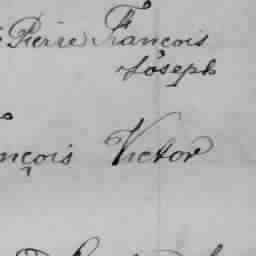 Pierre François
Joseph
nçois Victor